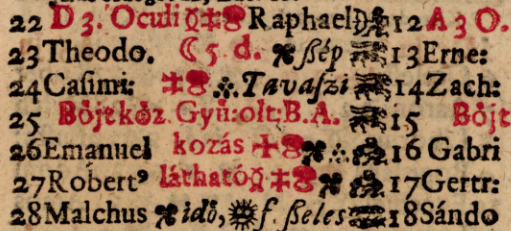 22 D 3. Oculi ☿‡ Raphael 12 A 3 O.
23 Theodo. ☾ 5. d. ßép 13 Erne:
24 Casimi: ‡ ∴ Tavaſzi 14 Zach:
25 Böjtköz. Gyü: olt: B. A. 15 Böjt
26 Emanuel kozás ∴ 16 Gabri
27 Robertꝰ látható ☿‡ 17 Gertr:
28 Malchus idö, f. ßeles 18 Sándo